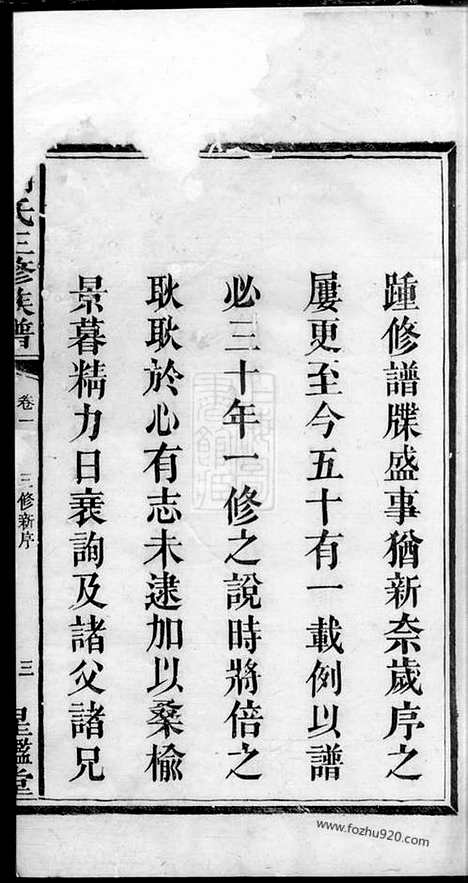 踵修譜牒盛事猶新奈歲序之
屢更至今五十有一載例以譜
必三十年一修之說時將倍之
耿耿於心有志未逮加以桑榆
景暮精力日衰詢及諸父諸兄
氏三修族譜
卷一
三修新序
三
鑑堂
www.fozhu920.com